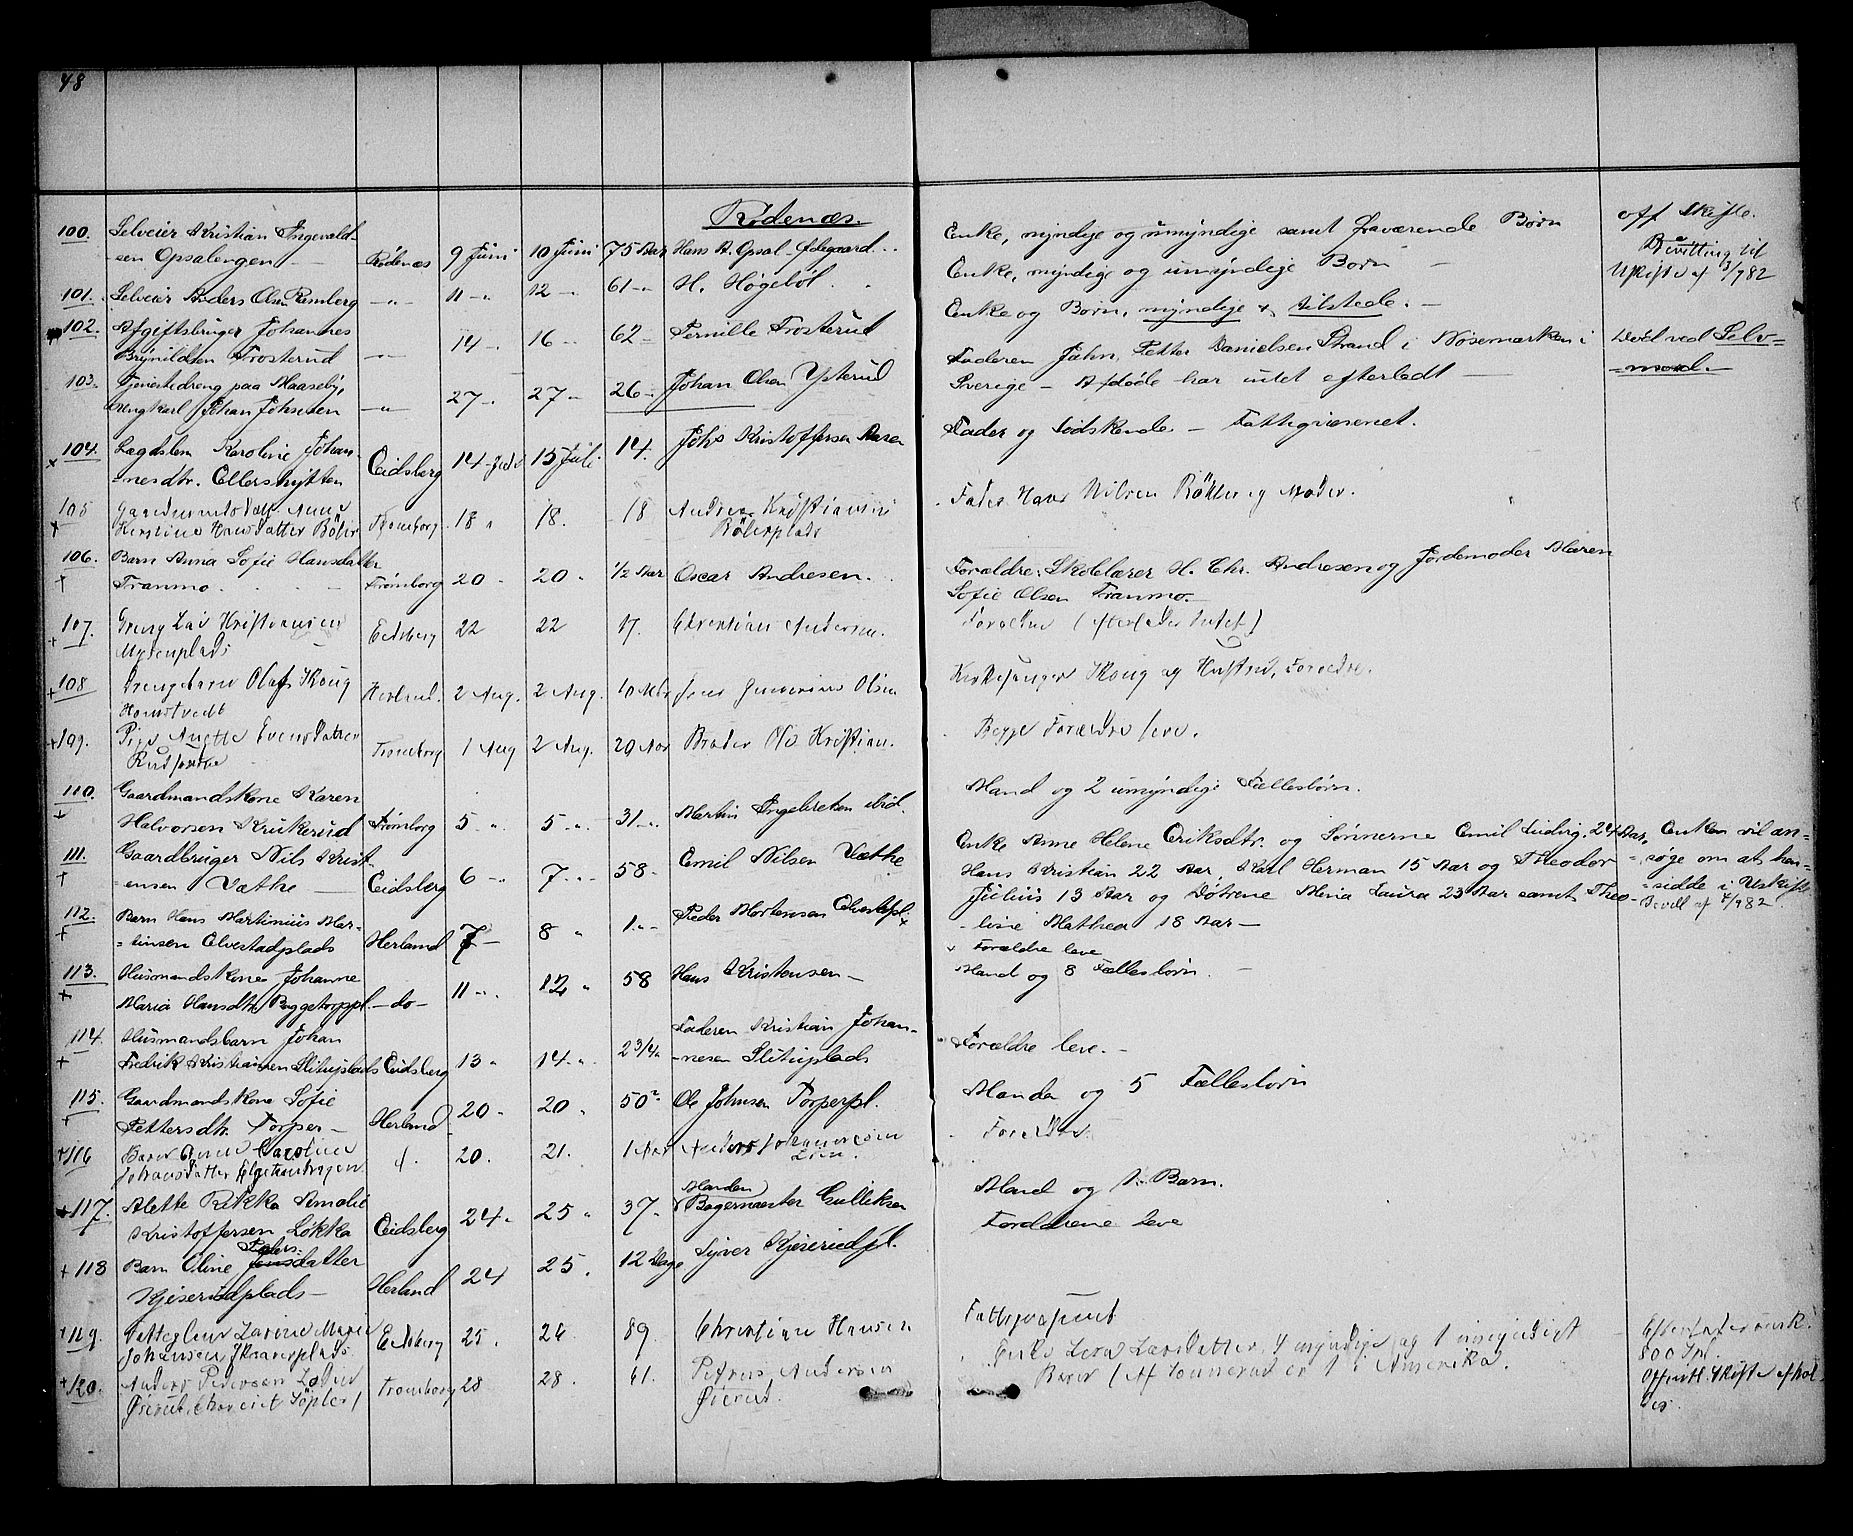 48
Rødenæs.
100. Selveier Kristian Ingevald-
sen Opsalengen — Rødenæs 9 Juni 10 Juni 75 Aar Hans A. Opsal - Ødegaard. Enke, myndige og umyndige samt fraværende Børn off Skifte.
101. Selveier Anders Olsen Ramberg —„— 11 —„ 12 —„ 61 —„ H. Høgebøl. Enke, myndige og umyndige Børn — Bevilling til
Uskifte af 3/7 82
102. Afgiftsbruger Johannes
Brynildsen Frosterud —„— 14 —„ 16 —„ 62 — Pernille Frosterud Enke og Børn, myndige & tilstede. — Død ved Selv=
=mord.
103. Tjenestedreng paa Haaseby,
ungkarl Johan Johnsen —„— 27 —„ 27 —„ 26 —„ Johan Olsen Ysterud Faderen John Petter Danielsen Strand i Nøsemarken i
Sverige — Afdøde har intet efterladt —
104. Lægdslem Karoline Johan-
nesdtr. Ellershytten Eidsberg 14 Juli 15 Juli 14. Johs Kristoffersen Aasen Fader og Sødskende — Fattigvæsenet.
105 Gaardmandsdatt Anne
Kirstine Hansdatter Böler Tromborg 18 „ 18. 18 Andreas Kristiansen
Bölerplads Fader Hans Nilsen Böler og Moder.
106. Barn Anna Sofie Hansdatter
Tranmo Trømborg 20 „ 20 „ 1/2 Aar Oscar Andresen. Forældre: Skolelærer H. Chr. Andresen og Jordemoder Maren
Sofie Olsen Tranmo —
107. Dreng Kristiansen
Mysenplads Eidsberg 22 22 17. Christian Andersen. Forældre (Efterlader Intet)
108 Drengebarn Olaf Skoug
Homstvedt Herland. 2 Aug. 2 Aug. 10 Mdr Jens Gunerius Olsen Kirkesanger Skoug og Hustru, Forældre.
109. Pige Anette Evensdatter
Tromborg 1 Aug 2 Aug. 20 Aar Broder Ole Kristian. Begge Forældre leve.
110. Gaardmandskone Karen
Halvorsen Krukerud Trømborg 5 „ 5 „ 31 „ Martin Ingebretsen ibid. Mand og 2 umyndige Fællesbørn.
111. Gaardbruger Nils Krist-
ensen Væthe — Eidsberg 6 „ 7 „ 58 - Emil Nilsen Væthe Enke Anne Helene Eriksdtr. og Sønnerne Emil Ludvig 24 Aar, Enken vil an=
Hans Kristian 22 Aar, Karl Herman 15 Aar og Theodor =søge om at hen=
Julius 13 Aar og Døtrene Mina Laura 23 Aar samt Theo- =sidde i Uskifte
line Mathea 18 Aar — Bevill af 4/9 82
112. Barn Hans Martinius Mar-
=tinsen Olvestadplads Herland 7 — 8 „ 1 „ Peder Mortensen Olvestpl. × × Forældre leve
113. Husmandskone Johanne
Maria Hansdtr Baggetorppl. — do — 11 „ 12 „ 58 Hans Kristensen — Mand og 8 Fællesbørn.
114. Husmandsbarn Johan
Fredrik Kristiansen Slituplads Eidsberg 13 „ 14 „ 2 3/4 „ Faderen Kristian Johan-
-nesen Slituplads Forældre leve. —
115. Gaardmandskone Sofie
Pettersdtr. Torper — Herland 20 - 20 „ 50 „ Ole Johnsen Torperpl. Manden og 5 Fællesbørn
116 Barn Caroline
Johansdatter d. 20. 21. 1 Aar Anders Johannessen
Forældre
117. Alette Rikka Amalie
Kristoffersen Løkka Eidsberg 24 „ 25 „ 37 „ Manden
Bagermester Gulliksen Mand og 1 Barn.
118 Barn Oline Jensdatter Peders:
Kjeserudplads — Herland 24 25. 12 Dage Syver Kjeserudpl. Forældrene leve
119. Fattiglem Larine Marie
Johansen, Skaarerplads. Eidsberg 25. 26 89. Christian Hansen Fattigvæsenet
120. Anders Pedersen
Øierud Tromborg 28 28. 61. Petrus Andersen
Øierud. Enke Lena Larsdatter, 4 myndige og 1 umyndigt
Børn (Af Sønnerne er 1 i Amerika. Efterlader
800 Spd.
Offentl. Skifte afhol-
des.